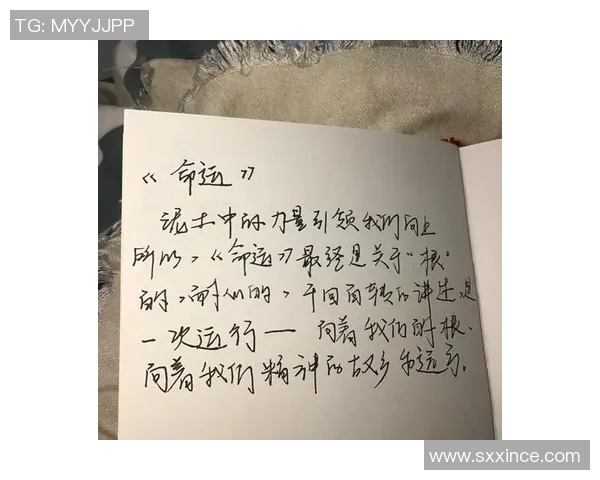 TG: MYYJJPP
《命运》
泥土中的力量引领我们向上
所以,《命运》最终是关于“根”
的,耐人的,千回百转的讲述,是
一次运行——向着我们的根、
向着我们精神的故乡的运行。
www.sxxince.com